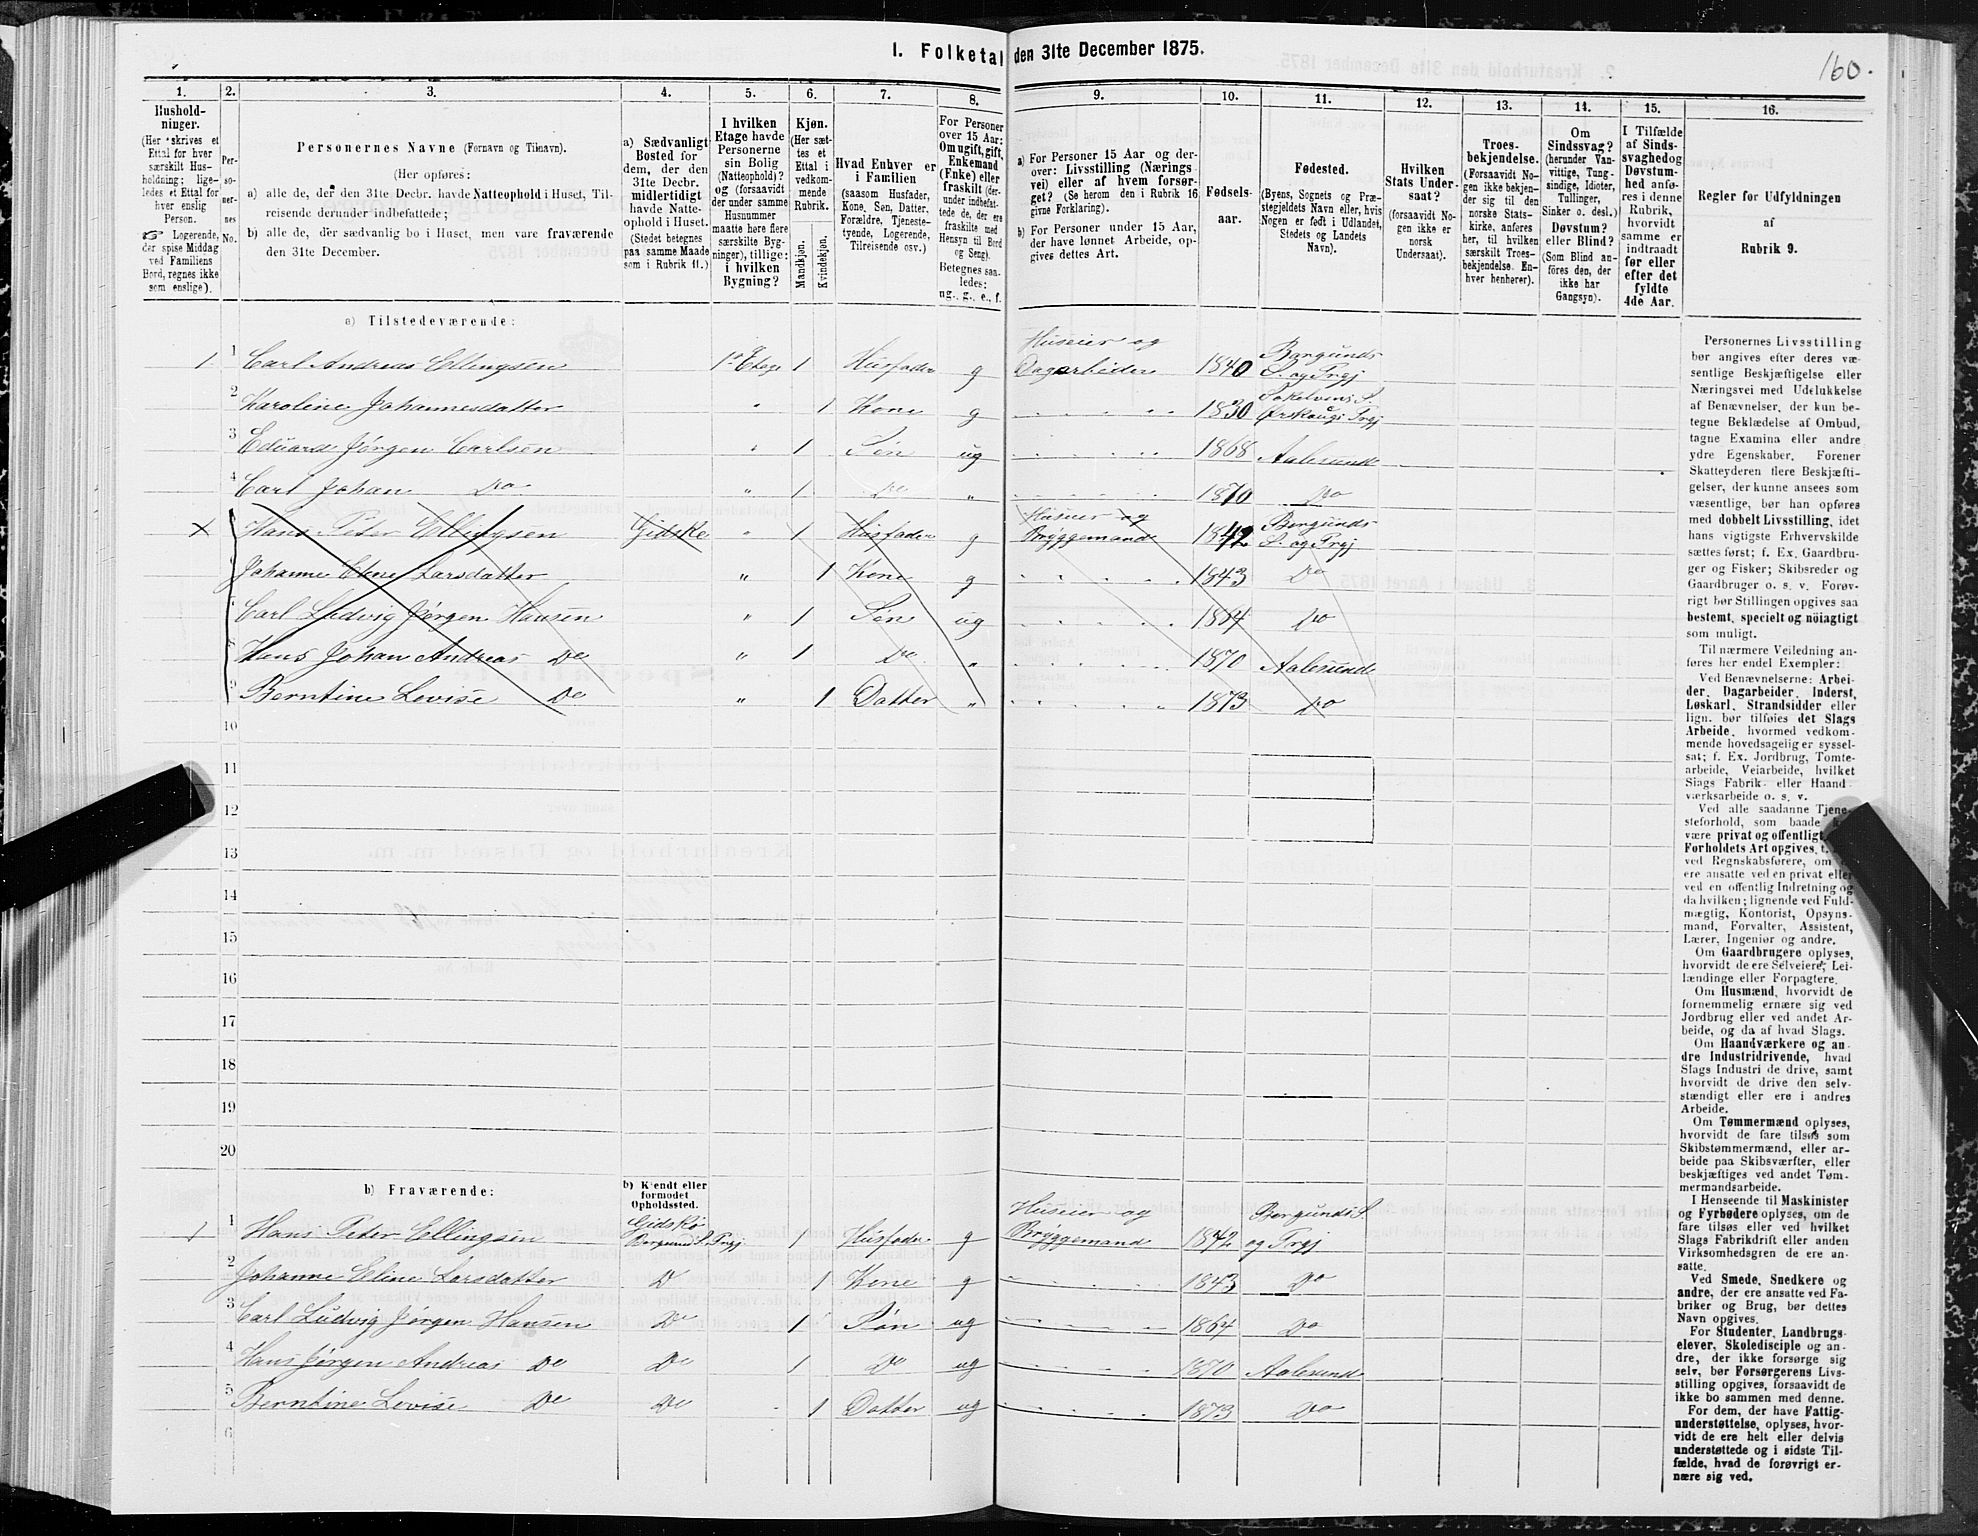 1. Folketal den 31te December 1875.
160.
1. 2. 3. 4. 5. 6. 7. 8. 9. 10. 11. 12. 13. 14. 15. 16.
Hushold-
ninger.
(Her skrives et
Ettal for hver
særskilt Hus-
holdning; lige-
ledes et Ettal for
hver enslig
Person.
Logerende,
der spise Middag
ved Familiens
Bord, regnes ikke
som enslige).
Per-
so-
ner-
nes
No.
Personernes Navne (Fornavn og Tilnavn).
(Her opføres:
a) alle de, der den 31te Decbr. havde Natteophold i Huset, Til-
reisende derunder indbefattede;
b) alle de, der sædvanlig bo i Huset, men vare fraværende
den 31te December.
a) Sædvanligt
Bosted for
dem, der den
31te Decbr.
midlertidigt
havde Natte-
ophold i Huset.
(Stedet betegnes
paa samme Maade
som i Rubrik 11.)
I hvilken
Etage havde
Personerne
sin Bolig
(Natteophold)?
og (forsaavidt
der under samme
Husnummer
maatte høre flere
særskilte Byg-
ninger), tillige:
i hvilken
Bygning?
Kjøn.
(Her sæt-
tes et
Ettal i
vedkom-
mende
Rubrik.
Mandkjøn.
Kvindekjøn.
Hvad Enhver er
i Familien
(saasom Husfader,
Kone, Søn, Datter,
Forældre, Tjeneste-
tyende, Logerende,
Tilreisende osv.)
For Personer
over 15 Aar:
Om ugift, gift,
Enkemand
(Enke) eller
fraskilt (der-
under indbefat-
tede de, der ere
fraskilte med
Hensyn til Bord
og Seng).
Betegnes saa-
ledes:
ug., g., e., f.
a) For Personer 15 Aar og der-
over: Livsstilling (Nærings-
vei) eller af hvem forsør-
get? (Se herom den i Rubrik 16
givne Forklaring).
b) For Personer under 15 Aar,
der have lønnet Arbeide, op-
gives dettes Art.
Fødsels-
aar.
Fødested.
(Byens, Sognets og Præ-
stegjeldets Navn eller, hvis
Nogen er født i Udlandet,
Stedets og Landets
Navn).
Hvilken
Stats Under-
saat?
(forsaavidt No-
gen ikke er
norsk
Undersaat).
Troes-
bekjendelse.
(Forsaavidt No-
gen ikke bekjen-
der sig til den
norske Stats-
kirke, anføres
her, til hvilken
særskilt Troes-
bekjendelse. En-
hver henhører).
Om
Sindssvag?
(herunder Van-
vittige, Tung-
sindige, Idioter,
Tullinger,
Sinker o. desl.)
Døvstum?
eller Blind?
(Som Blind an-
føres den, der
ikke har
Gangsyn).
I Tilfælde
af Sinds-
svaghed og
Døvstum-
hed anfø-
res i denne
Rubrik,
hvorvidt
samme er
indtraadt
før eller
efter det
fyldte
4de Aar.
Regler for Udfyldningen
af
Rubrik 9.
a) Tilstedeværende:
1 1 Carl Andreas Ellingsen 1ste Etage 1 Husfader g Huseier og Dagarbeider 1840 Borgunds S. og Prgj
2 Karoline Johannesdatter " 1 Kone g 1830 Ørskougs Prgj
3 Eduard Jørgen Carlsen " 1 Søn ug 1868 Aalesund
4 Carl Johan Do " 1 Do " 1870 Do
X Hans Peter Ellingsen Gidske " 1 Husfader g Huseier og Bryggemand 1842 Borgunds S. og Prgj
Johanne Eline Larsdatter " 1 Kone g 1843 Do
Carl Ludvig Jørgen Hansen " 1 Søn ug 1864 Do
Hans Johan Andreas Do " 1 Do " 1870 Aalesund
9 Berntine Lovise Do " 1 Datter " 1873 Do
10
11
12
13
14
15
16
17
18
19
20
b) Fraværende:
b) Kjendt eller
formodet
Opholdssted.
1 1 Hans Peter Ellingsen Gidskø Borgund S. Prgj 1 Husfader g Huseier og Bryggemand 1842 Borgunds S. og Prgj
2 Johanne Eline Larsdatter Do 1 Kone g 1843 Do
3 Carl Ludvig Jørgen Hansen Do 1 Søn ug 1864 Do
4 Hans Jørgen Andreas Do Do 1 Do ug 1870 Aalesund
5 Berntine Lovise Do Do 1 Datter ug 1873 Do
6
Personernes Livsstilling
bør angives efter deres væ-
sentlige Beskjæftigelse eller
Næringsvei med Udelukkelse
af Benævnelser, der kun be-
tegne Beklædelse af Ombud,
tagne Examina eller andre
ydre Egenskaber. Forener
Skatteyderen flere Beskjæfti-
gelser, der kunne ansees som
væsentlige, bør han opføres
med dobbelt Livsstilling, idet
hans vigtigste Erhvervskilde
sættes først; f. Ex. Gaardbru-
ger og Fisker; Skibsreder og
Gaardbruger o. s. v. Forøv-
rigt bør Stillingen opgives saa
bestemt, specielt og nöiagtigt
som muligt.
Til nærmere Veiledning an-
føres her endel Exempler:
Ved Benævnelserne: Arbei-
der, Dagarbeider, Inderst,
Løskarl, Strandsidder eller
lign. bør tilføies det Slags
Arbeide, hvormed vedkom-
mende hovedsagelig er syssel-
sat; f. Ex. Jordbrug, Tomte-
arbeide, Veiarbeide, hvilket
Slags Fabrik- eller Haand
værksarbeide o. s. v.
Ved alle saadanne Tjene-
steforhold, som baade
være privat og offentligt,
Forholdets Art opgives,
ved Regnskabsførere, om
ere ansatte ved en privat eller
ved en offentlig Indretning og
da hvilken; lignende ved Fuld-
mægtig, Kontorist, Opsyns-
mand, Forvalter, Assistent,
Lærer, Ingeniør og andre.
Om Gaardbrugere oplyses,
hvorvidt de ere Selveiere, Lei-
lændinge eller Forpagtere.
Om Husmænd, hvorvidt de
fornemmelig ernære sig ved
Jordbrug eller ved andet Ar-
beide, og da af hvad Slags.
Om Haandværkere og an-
dre Industridrivende, hvad
Slags Industri de drive, samt
hvorvidt de drive den selv-
stændigt eller ere i andres
Arbeide.
Om Tømmermænd oplyses,
hvorvidt de fare tilsøs som
Skibstømmermænd, eller ar-
beide paa Skibsværfter, eller
beskjæftiges ved andet Tøm-
mermandsarbeide.
I Henseende til Maskinister
og Fyrbødere oplyses, om de
fare tilsøs eller ved hvilket
Slags Fabrikdrift eller anden
Virksomhedsgren de ere an-
satte.
Ved Smede, Snedkere og
andre, der ere ansatte ved Fa-
briker og Brug, bør dettes
Navn opgives.
For Studenter, Landbrugs-
elever, Skoledisciple og an-
dre, der ikke forsørge sig
selv, bør Forsørgerens Livs-
stilling opgives, forsaavidt de
ikke bo sammen med denne.
For dem, der have Fattig-
understøttelse, oplyses, hvor-
vidt de ere helt eller delvis
understøttede og i sidste Til-
fælde, hvad de forøvrigt er-
nære sig ved.